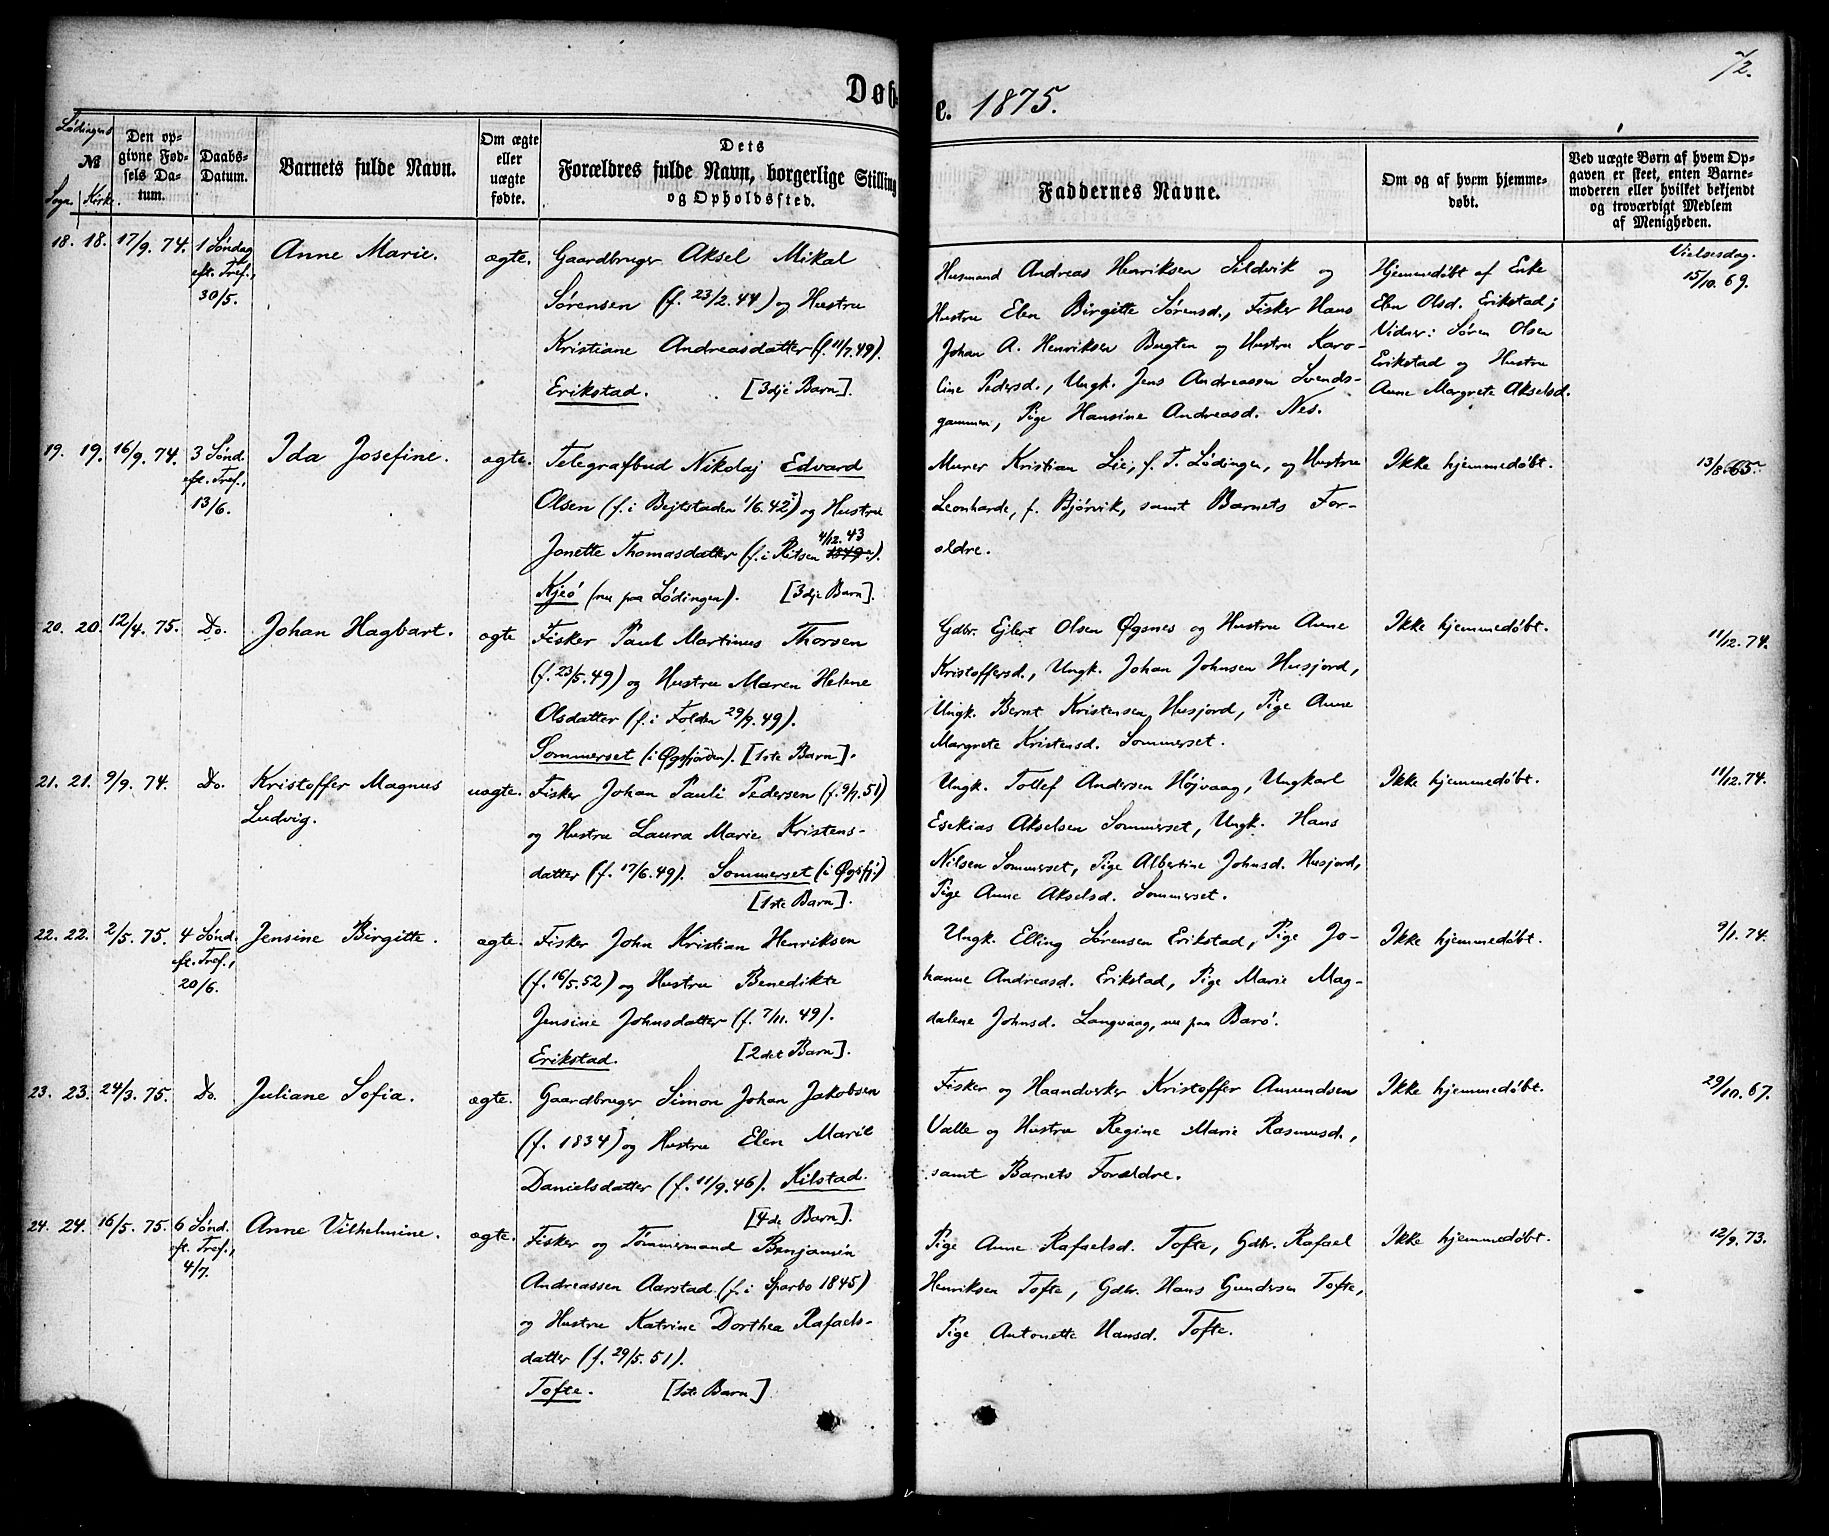 72.
Døbte. 1875.
Lødingens
№
Sogn Kirke.
Den op-
givne Fød-
sels Da-
tum.
Daabs-
Datum.
Barnets fulde Navn.
Om ægte
eller
uægte
fødte.
Dets
Forældres fulde Navn, borgerlige Stilling
og Opholdssted.
Faddernes Navne.
Om og af hvem hjemme-
døbt.
Ved uægte Børn af hvem Op-
gaven er skeet, enten Barne-
moderen eller hvilket bekjendt
og troværdigt Medlem
af Menigheden.
18. 18. 17/9. 74. 1 Søndag
eft. Tref.,
30/5.
Anne Marie.
ægte.
Gaardbruger Aksel Mikal
Sørensen (f. 23/2. 44) og Hustru
Kristiane Andreasdatter (f. 11/7. 49).
Erikstad. [3dje Barn].
Husmand Andreas Henriksen Sildvik og
Hustru Elen Birgitte Sørensd., Fisker Hans
Johan A. Henriksen Bugten og Hustru Karo-
line Pedersd., Ungk. Jens Andreassen Svends-
gammen, Pige Hansine Andreasd. Nes.
Hjemmedøbt af Enke
Elen Olsd. Erikstad;
Vidner: Søren Olsen
Erikstad og Hustru
Anne Margrete Akselsd.
Vielsesdag.
15/10. 69.
19. 19. 16/9. 74. 3 Sønd.
eft. Tref.,
13/6.
Ida Josefine.
ægte.
Telegrafbud Nikolaj Edvard
Olsen (f. i Bejtstaden 1/6. 42) og Hustru
4/12. 43
Jonette Thomasdatter (f. i Ritsen 1849).
Kjeø (nu paa Lødingen). [3dje Barn].
Murer Kristian Lie, f. T. Lødingen, og Hustru
Leonharde, f. Bjørvik, samt Barnets For-
ældre.
Ikke hjemmedøbt.
13/8. 65.
20. 20. 12/4. 75. Do.
Johan Hagbart.
ægte
Fisker Paul Martinus Thorsen
(f. 23/5. 49) og Hustru Maren Helene
Olsdatter (f. i Folden 29/9. 49).
Sommerset (i Øgsfjorden). [1ste Barn].
Gdbr. Ejlert Olsen Øgsnes og Hustru Anne
Kristoffersd., Ungk. Johan Johnsen Husjord,
Ungk. Bernt Kristensen Husjord, Pige Anne
Margrete Kristensd. Sommerset.
Ikke hjemmedøbt.
11/12. 74.
21. 21. 9/9. 74. Do.
Kristoffer Magnus
Ludvig.
uægte.
Fisker Johan Pauli Pedersen (f. 9/7. 51)
og Hustru Laura Marie Kristens-
datter (f. 17/6. 49). Sommerset (i Øgsfj:)
[1ste Barn].
Ungk. Tollef Andersen Højvaag, Ungkarl
Esekias Akselsen Sommerset, Ungk. Hans
Nilsen Sommerset, Pige Albertine Johnsd. Husjord,
Pige Anne Akselsd. Sommerset.
Ikke hjemmedøbt.
11/12. 74.
22. 22. 2/5. 75. 4 Sønd.
eft. Tref.,
20/6.
Jensine Birgitte.
ægte.
Fisker John Kristian Henriksen
(f. 16/5. 52) og Hustru Benedikte
Jensine Johnsdatter (f. 7/11. 49).
Erikstad. [2det Barn].
Ungk. Elling Sørensen Erikstad, Pige Jo-
hanne Andreasd. Erikstad, Pige Marie Mag-
dalene Johnsd. Langvaag, nu paa Barø.
Ikke hjemmedøbt.
9/1. 74.
23. 23. 24/3. 75. Do.
Juliane Sofia.
ægte.
Gaardbruger Simon Johan Jakobsen
(f. 1834) og Hustru Elen Marie
Danielsdatter (f. 11/9. 46). Kilstad.
[4de Barn].
Fisker og Haandverker Kristoffer Amundsen
Valle og Hustru Regine Marie Rasmusd.,
samt Barnets Forældre.
Ikke hjemmedøbt.
29/10. 67.
24. 24. 16/5. 75. 6 Sønd.
eft. Tref.,
4/7.
Anne Vilhelmine.
ægte.
Fisker og Tømmermand Benjamin
Andreassen Aarstad (f. i Sparbo 1845)
og Hustru Katrine Dorthea Rafaels-
datter (f. 29/5. 51).
Tofte. [1ste Barn]
Pige Anne Rafaelsd. Tofte, Gdbr. Rafael
Henriksen Tofte, Gdbr. Hans Gundersen Tofte,
Pige Antonette Hansd. Tofte.
Ikke hjemmedøbt.
12/9. 73.